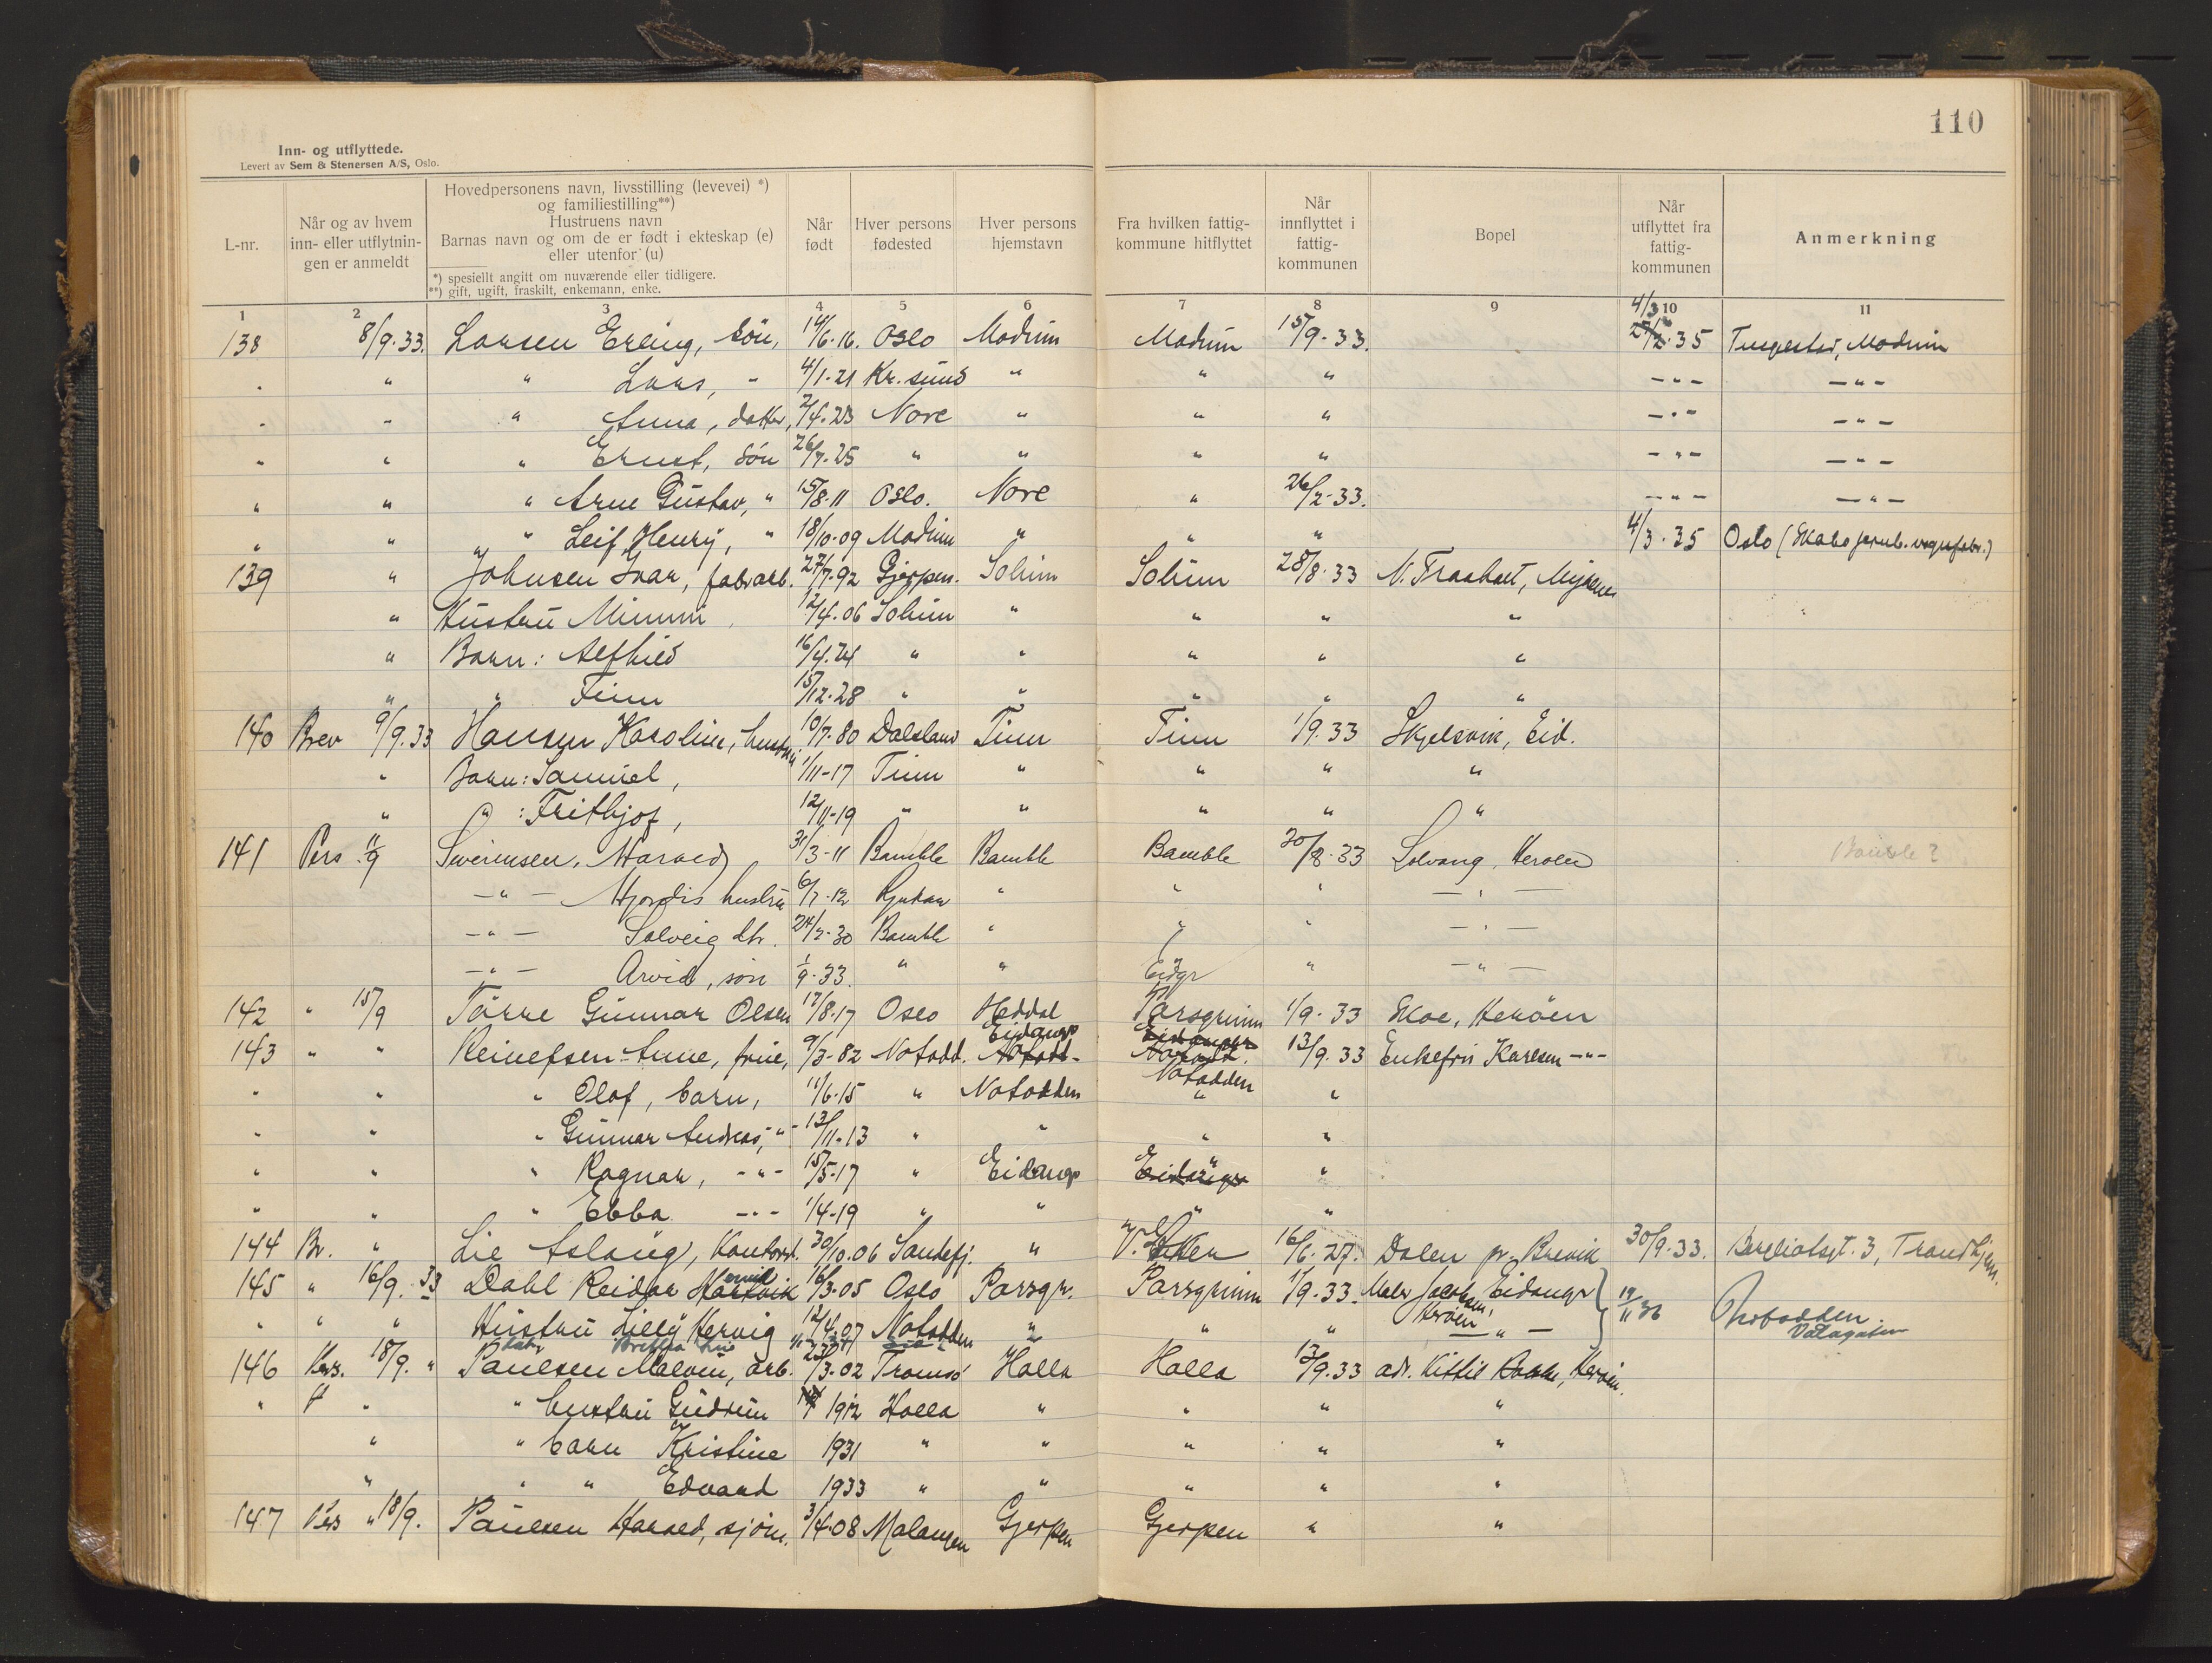 110
Inn- og utflyttede.
Levert av Sem & Stenersen A/S, Oslo.
L-nr.
Når og av hvem
inn- eller utflytnin-
gen er anmeldt
Hovedpersonens navn, livsstilling (levevei) *)
og familiestilling**)
Hustruens navn
Barnas navn og om de er født i ekteskap (e)
eller utenfor (u)
*) spesiellt angitt om nuværende eller tidligere.
**) gift, ugift, fraskilt, enkemann, enke.
Når
født
Hver persons
fødested
Hver persons
hjemstavn
Fra hvilken fattig-
kommune hitflyttet
Når
innflyttet i
fattig-
kommunen
Bopel
Når
utflyttet fra
fattig-
kommunen
Anmerkning
1 2 3 4 5 6 7 8 9 10 11
4/3
138 8/9.33. Larsen Erling, sön, 14/6.16. Oslo Modum Modum 15/9-33. 27/2.35 Modum
" " " Lars, " 4/1-21 Kr.sund " " " -"- -"-
" " " Anna, datter, 2/4-23 Nore " " " -"- -"-
" " " Ernst, sön 26/7-25 " " " " -"- -"-
" " " Arne Gustav, " 15/8-11 Oslo. Nore " 26/2-33. -"- -"-
" " " Leif Henry, " 18/10-09 Modum " " " 4/3.35 Oslo
139 " Johnsen Ivar, fabr.arb. 27/7-92 Gjerpen. Solum Solum 28/8.33 N.
" Hustru Mimmi 12/4.06 Solum " " " "
" Barn: Alfhild 16/4.24 " " " " "
" " Finn 15/12-28 " " " " "
140 Brev 9/9.33 Hansen Karoline, hustru 10/7-80 Dalsland Tinn Tinn 1/9.33 Skjelsvik, Eid.
" Barn: Samuel, 1/11-17 Tinn " " " "
" " : Frithjof, 12/11-19 " " " " "
141 Pers. 11/9 Sverensen, Harald 31/3-11 Bamble Bamble Bamble 30/8-33 Solvang, Heröen Bamble?
-"- Hjordis hustru 6/7-12 Rjukan " " " -"-
-"- Solveig dtr. 24/2-30 Bamble " " " -"-
-"- Arvid, sön 1/9-33. " " Eidgr " -"-
142 " 15/9 Törre Gunnar Olsen 17/8-17 Oslo Heddal Porsgrunn 1/9-33 Skoe, Heröen
Eidanger Eidanger
143 " " Reinefsen Anne, frue, 9/3-82 Notodd. Notodd. Notodd. 13/9.33 Enkefru Karlsen -"-
Notodden
" " " Olaf, barn, 11/6-15 " Notodden " "
" " " Gunnar Andreas, " 13/11-13 " " " "
" " " Ragnar, -"- 15/5-17 " Eidang Eidanger "
" " " Ebba -"- 1/4-19 " " " "
144 Br. " Lie Aslaug, Kontord. 30/10.06 Sandefj. " V. 16/6-27. Dalen pr. Brevik 30/9.33. 3, Trondhjem.
145 " 16/9.33 Dahl Reidar Hartvik 16/3-05 Oslo Porsgr. Porsgrunn 1/9.33. Maler Jacobsen, Eidangr
Heröen 19/11 36 Notodden.
" " " Hustru Lilly Hervig 12/4.07 Notodden " " " -"-
146 Pers. 18/9. " Paulsen Malvin, arb. 23/3-02 Tromsö Holla Holla 13/9.33 adr. Kittil Heröen.
" " " hustru Gudrun 1912 Holla " " " "
" " barn Kristine 1931 " " " " "
" " " Edvard 1933 " " " " "
147 Pers " 18/9. Paulsen Harald, sjöm. 3/4-08 Malangen Gjerpen Gjerpen " "